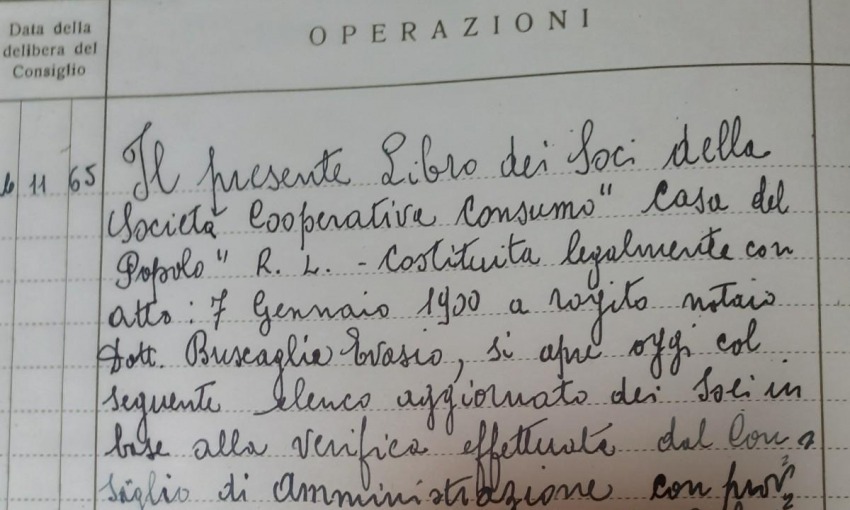 Data della
delibera del
Consiglio
OPERAZIONI
11 65
Il presente Libro dei Soci della
Società Cooperativa Consumo" Casa del
Popolo" R. L. - Costituita legalmente con
atto: 7 Gennaio 1900 a rogito notaio
Dott. Buscaglia Evasio, si apre oggi col
seguente elenco aggiornato dei Soci in
base alla verifica effettuata dal Con=
siglio di Amministrazione con